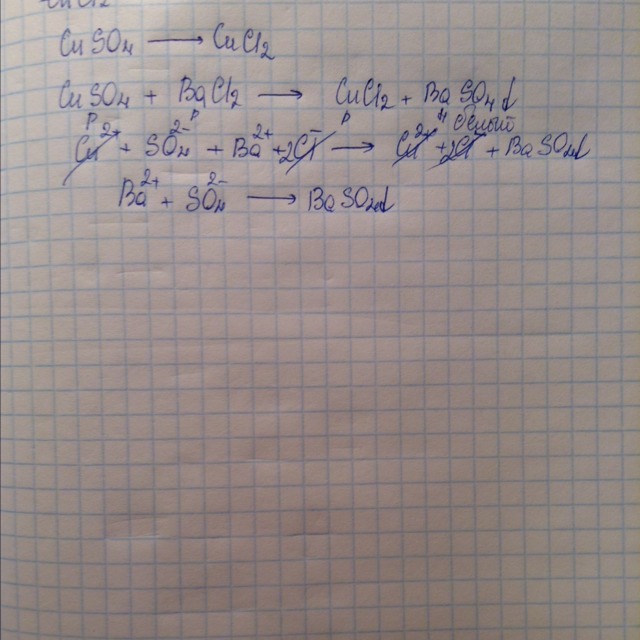 CuCl2
CuSO4 → CuCl2
CuSO4 + BaCl2 → CuCl2 + BaSO4↓
р р р н белый
Cu2+ + SO42- + Ba2+ + 2Cl- → Cu2+ + 2Cl- + BaSO4↓
Ba2+ + SO42- → BaSO4↓